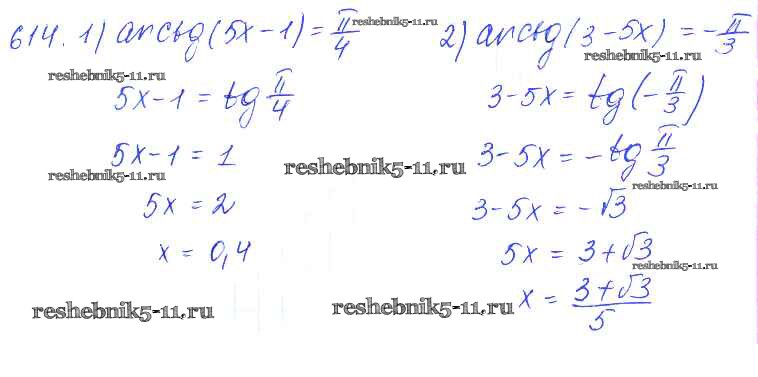 614. 1) arctg(5x-1)=π/4 reshebnik5-11.ru 2) arctg(3-5x) = -π/3
reshebnik5-11.ru reshebnik5-11.ru
5x-1 = tg π/4 3-5x = tg(-π/3)
5x-1 = 1 reshebnik5-11.ru 3-5x = -tg π/3
reshebnik5-11.ru reshebnik5-11.ru
5x = 2 3-5x = -√3
x = 0,4 5x = 3+√3
reshebnik5-11.ru
reshebnik5-11.ru reshebnik5-11.ru x = (3+√3)/5